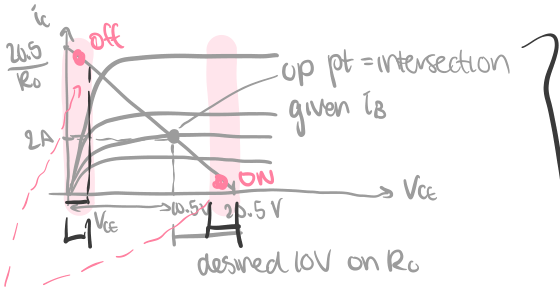 ic
Off
20.5
Ro
op pt = intersection
given iB
2A
ON
VCE
VCE
10.5V
20.5 V
desired 10V on Ro